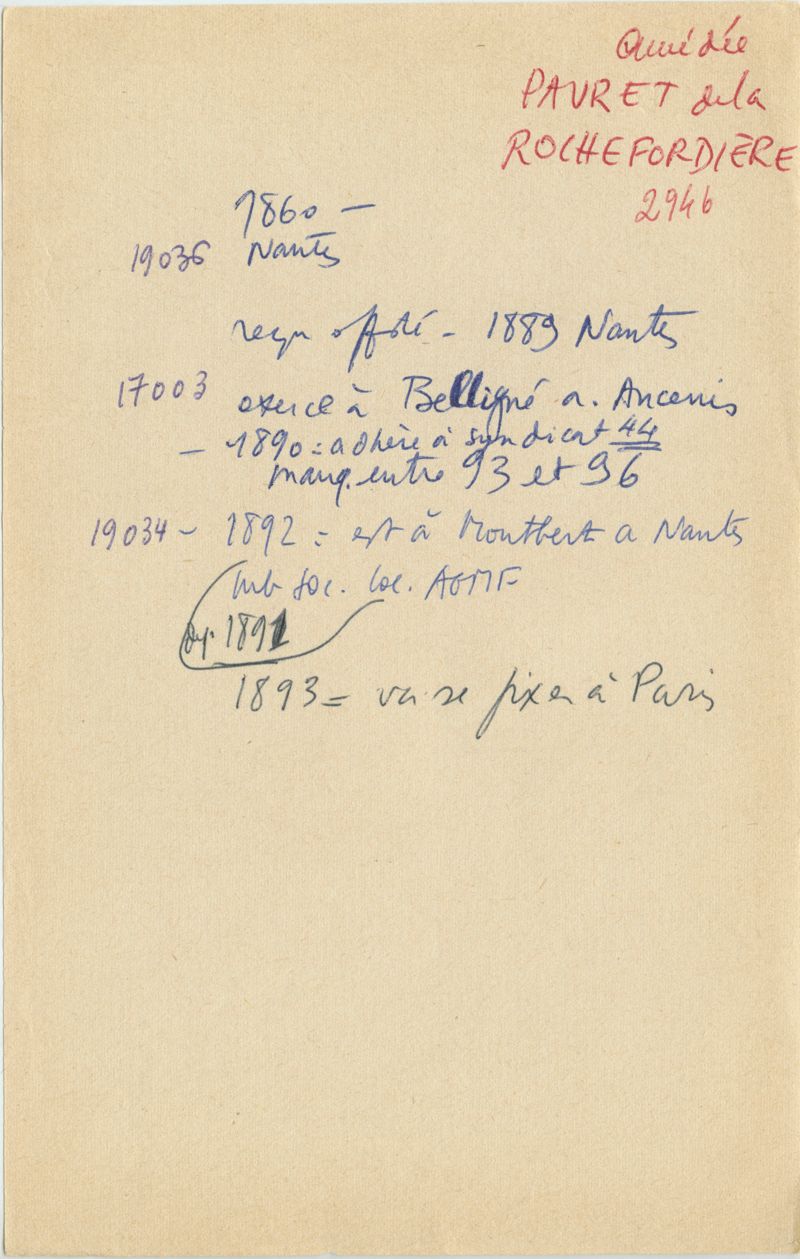 Amédée
PAVRET de la
ROCHEFORDIÈRE
2946
1860 —
19036 Nantes
reçu off. sté - 1889 Nantes
17003 exerce à Belligné a. Ancenis
— 1890 = adhère à syndicat 44
manq. entre 93 et 96
19034 - 1892 = est à Montbert a Nantes
mb soc. loc. AGMF
dep. 1891
1893 = va se fixer à Paris